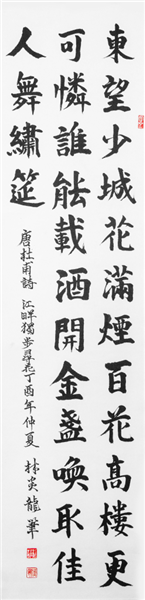 東望少城花滿煙百花高樓更
可憐誰能載酒開金盞喚取佳
人舞繡筵
唐杜甫詩 江畔獨步尋花丁酉年仲夏 林炎龍筆